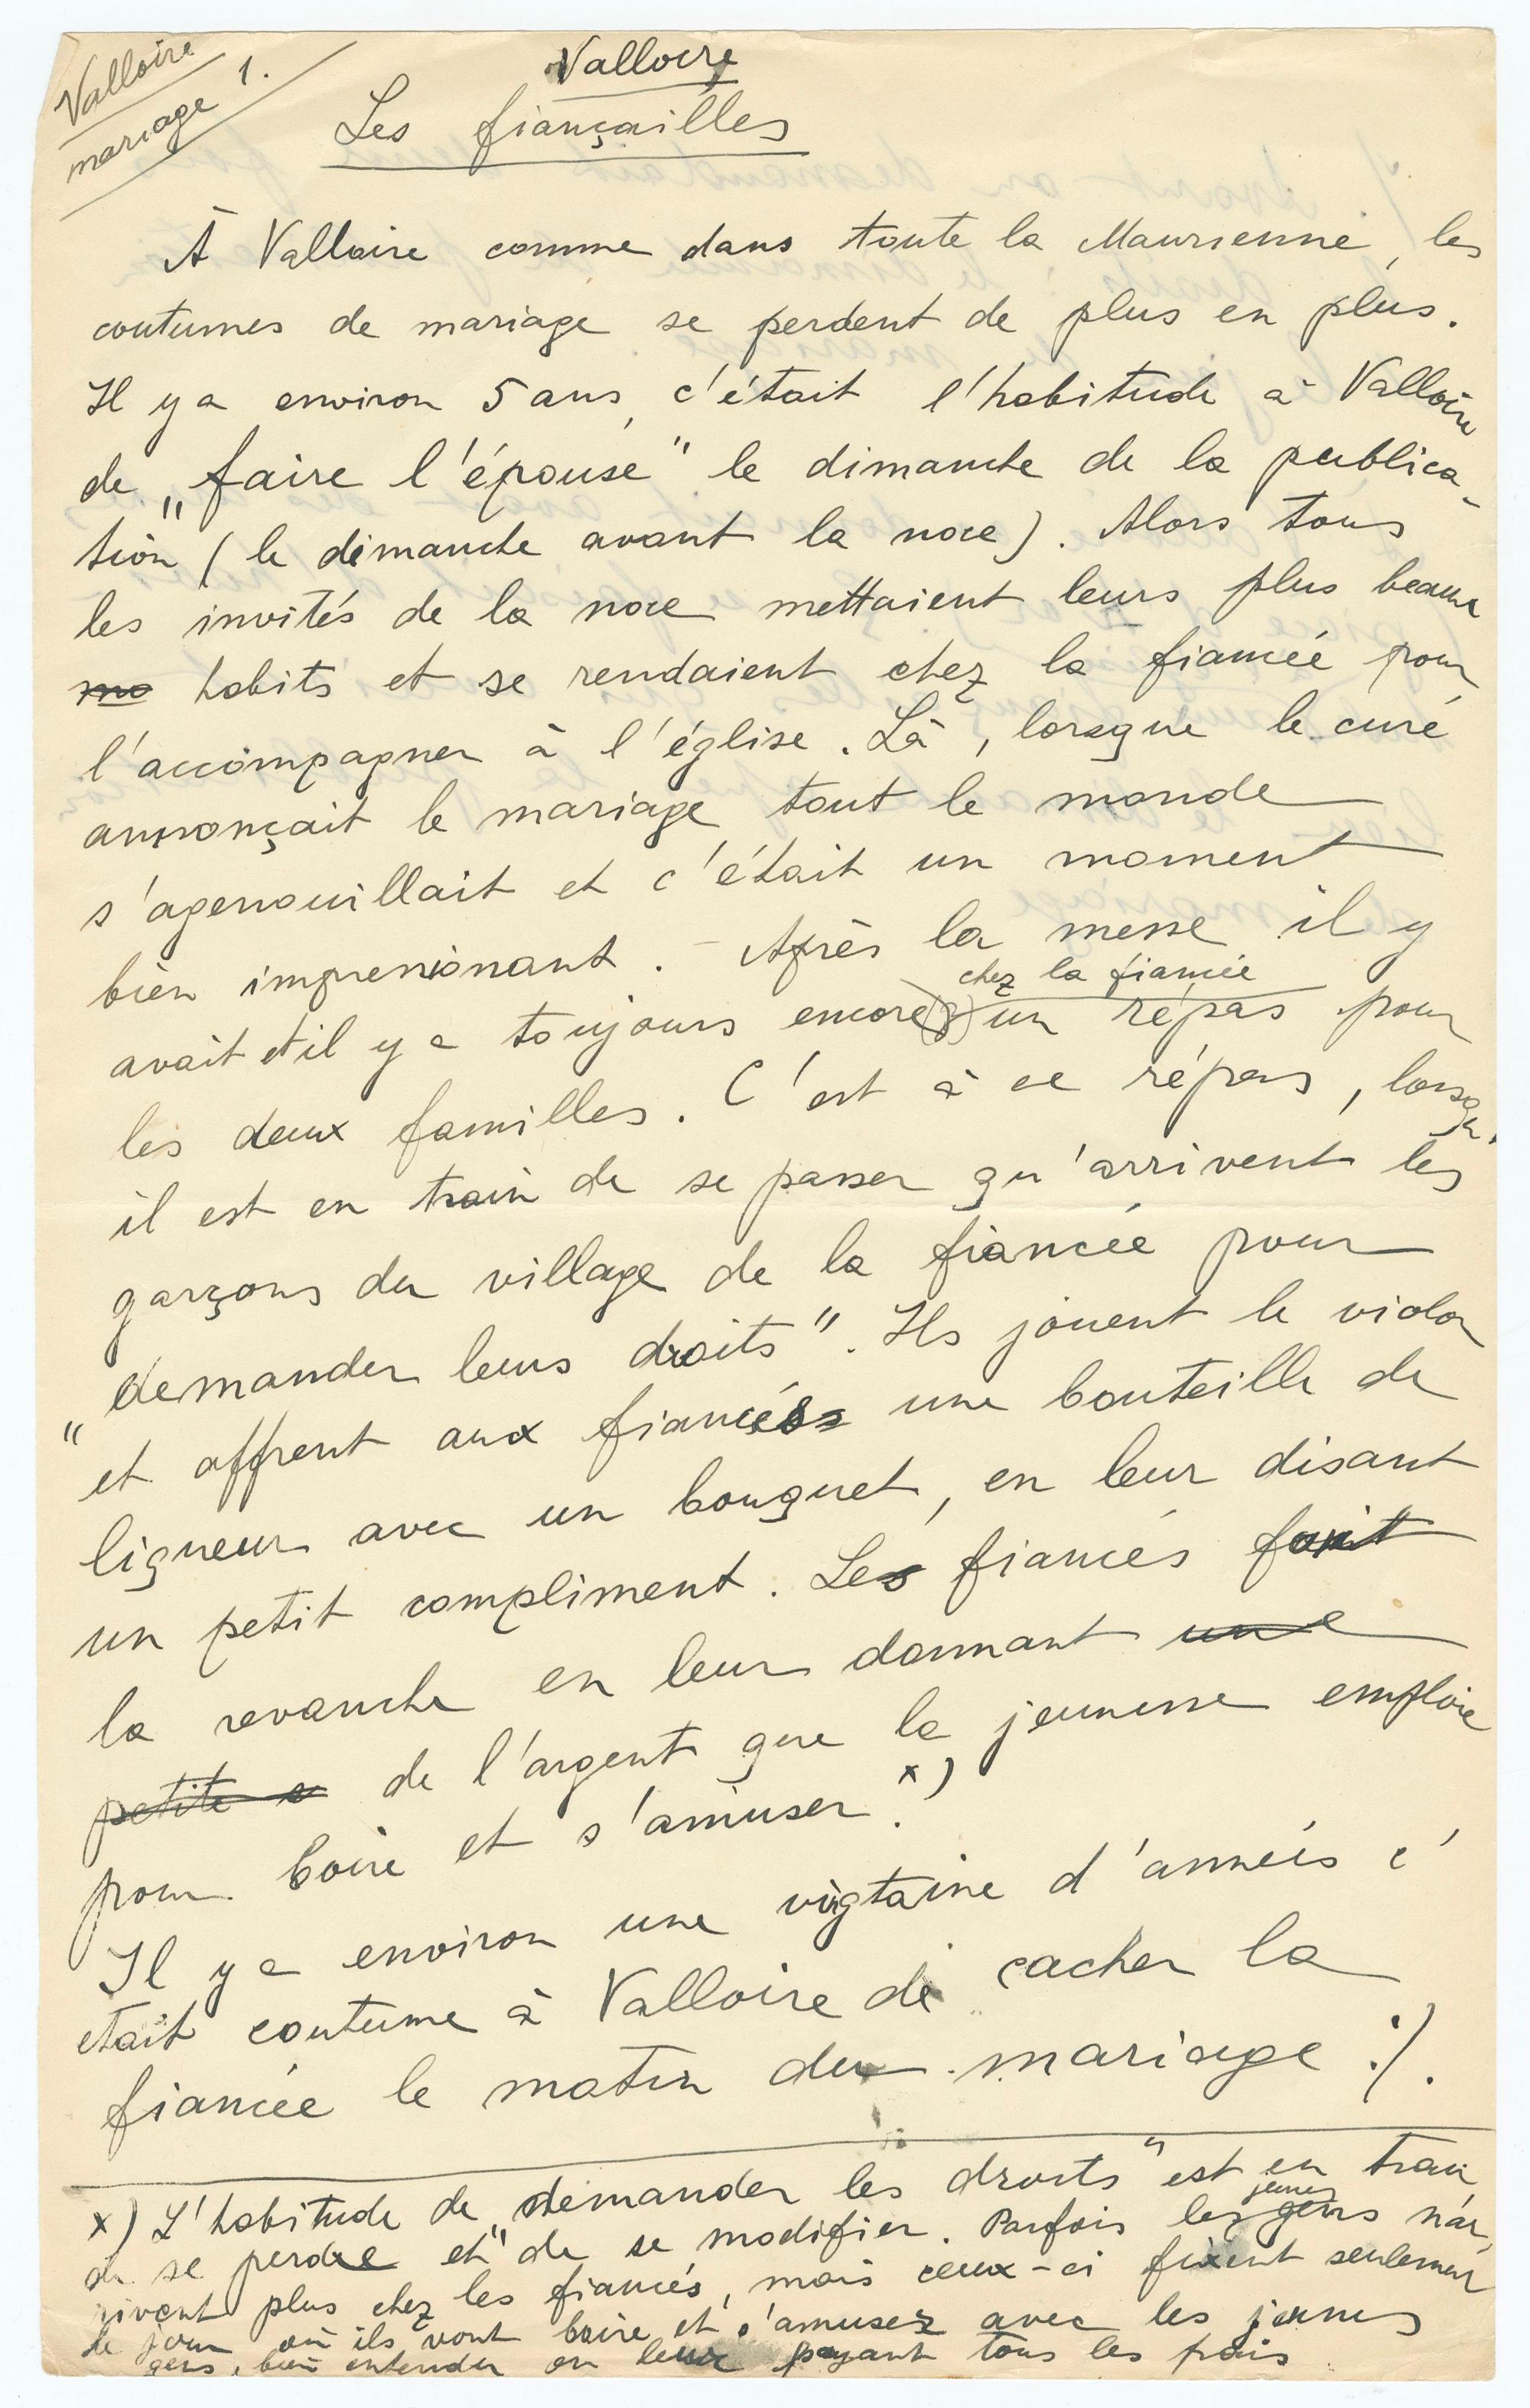 Valloire
mariage 1.
Valloire
Les fiançailles
À Valloire comme dans toute la Maurienne, les
coutumes de mariage se perdent de plus en plus.
Il y a environ 5 ans, c'était l'habitude à Valloire
de „faire l'épouse" le dimanche de la publica-
tion (le dimanche avant la noce). Alors tous
les invités de la noce mettaient leurs plus beaux
habits et se rendaient chez la fiancée pour
l'accompagner à l'église. Là, lorsque le curé
annonçait le mariage, tout le monde
s'agenouillait et c'était un moment
bien impressionant. – Après la messe il y
chez la fiancée
avait et il y a toujours encore un répas pour
les deux familles. C'est à ce répas, lorsqu'
il est en train de se passer qu'arrivent les
garçons du village de la fiancée pour
„demander leurs droits". Ils jouent le violon
et offrent aux fiancés une bouteille de
liqueur avec un bouquet, en leur disant
un petit compliment. Les fiancés font
la revanche en leur donnant une
petite s de l'argent que la jeunesse emploie
pour boire et s'amuser. x)
Il y a environ une vigtaine d'années c'
etait coutume à Valloire de cacher la
fiancée le matin du mariage ./.
x) L'habitude de „demander les droits" est en train
jeunes
de se perdre et de se modifier. Parfois les gens n'ar-
rivent plus chez les fiancés, mais ceux-ci fixent seulement
le jour où ils vont boire et s'amuser avec les jeunes
gens, bien entendu en leur payant tous les frais